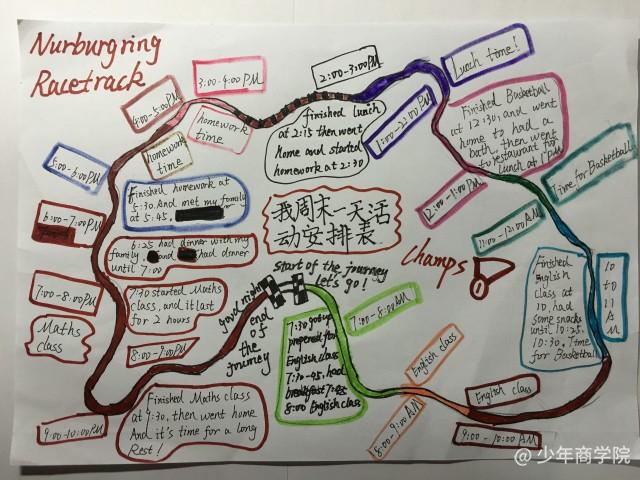 Nurburgring
Racetrack
3:00-4:00PM
2:00-3:00PM
Lunch time!
4:00-5:00PM
homework
time
finished lunch
at 2:15 then went
home and started
homework at 2:30
Finished Basketball
at 12:30, and went
home to had a
bath, then went
to restaurant for
lunch at 1PM
homework
time
5:00-6:00PM
12:00-1:00PM
Time for Basketball
Finished homework at
5:30. And met my family
at 5:45.
我周末一天活
动安排表
11:00-12:00AM
6:00-7:00PM
6:25 had dinner with my
family
and
had dinner
until 7:00
Champs
Finished
English
class at
10, had
some snacks
until 10:25.
10:30, Time
for Basketball
10
to
11
AM
start of the journey
let's go!
7:00-8:00PM
7:30 started Maths
class, and it last
for 2 hours
good night
end
of
the
journey
7:00-8:00AM
Maths
class
8:00-9:00PM
7:30 got up
prepared for
English class
7:30-45, had
breakfast 7:45
8:00 English class
English class
English class
Finished Maths class
at 9:30, then went home
And it's time for a long
Rest!
9:00-10:00PM
8:00-9:00AM
9:00-10:00AM
@少年商学院